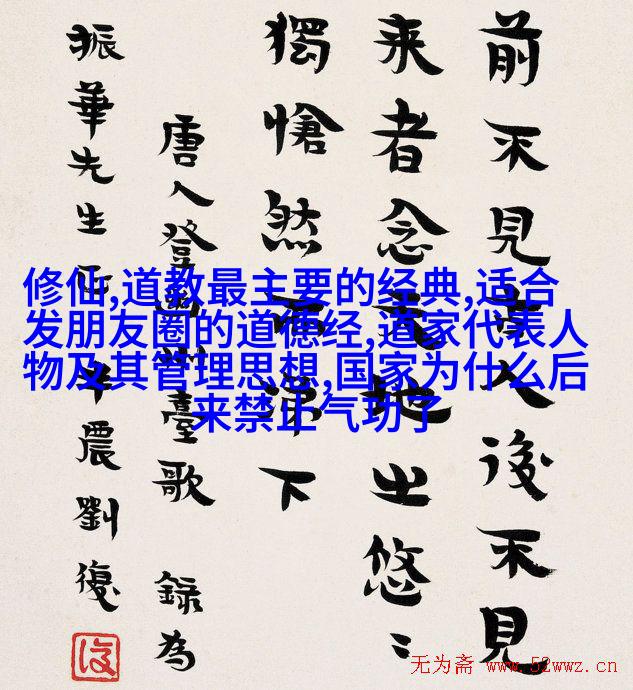 前不見古人後不見
来者念天地之悠〻
獨愴然而涕下
唐人登幽州臺歌 錄為
振華先生正 半農劉復
修仙,道教最主要的经典,适合
发朋友圈的道德经,道家代表人
物及其管理思想,国家为什么后
来禁止气功了
无为斋 www.52wwz.cn